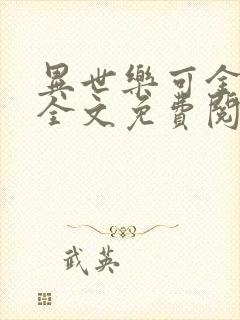 異世樂可全
全文免費閱
武英